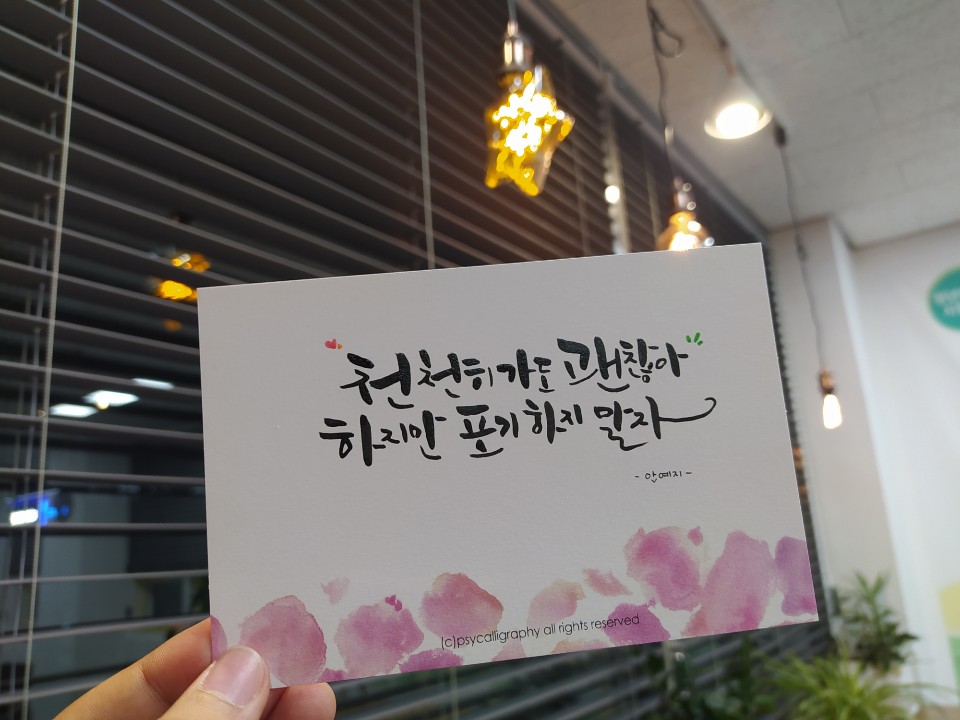 천천히 가도 괜찮아
하지만 포기하지 말자
- 안예지 -
(c)psycalligraphy all rights reserved